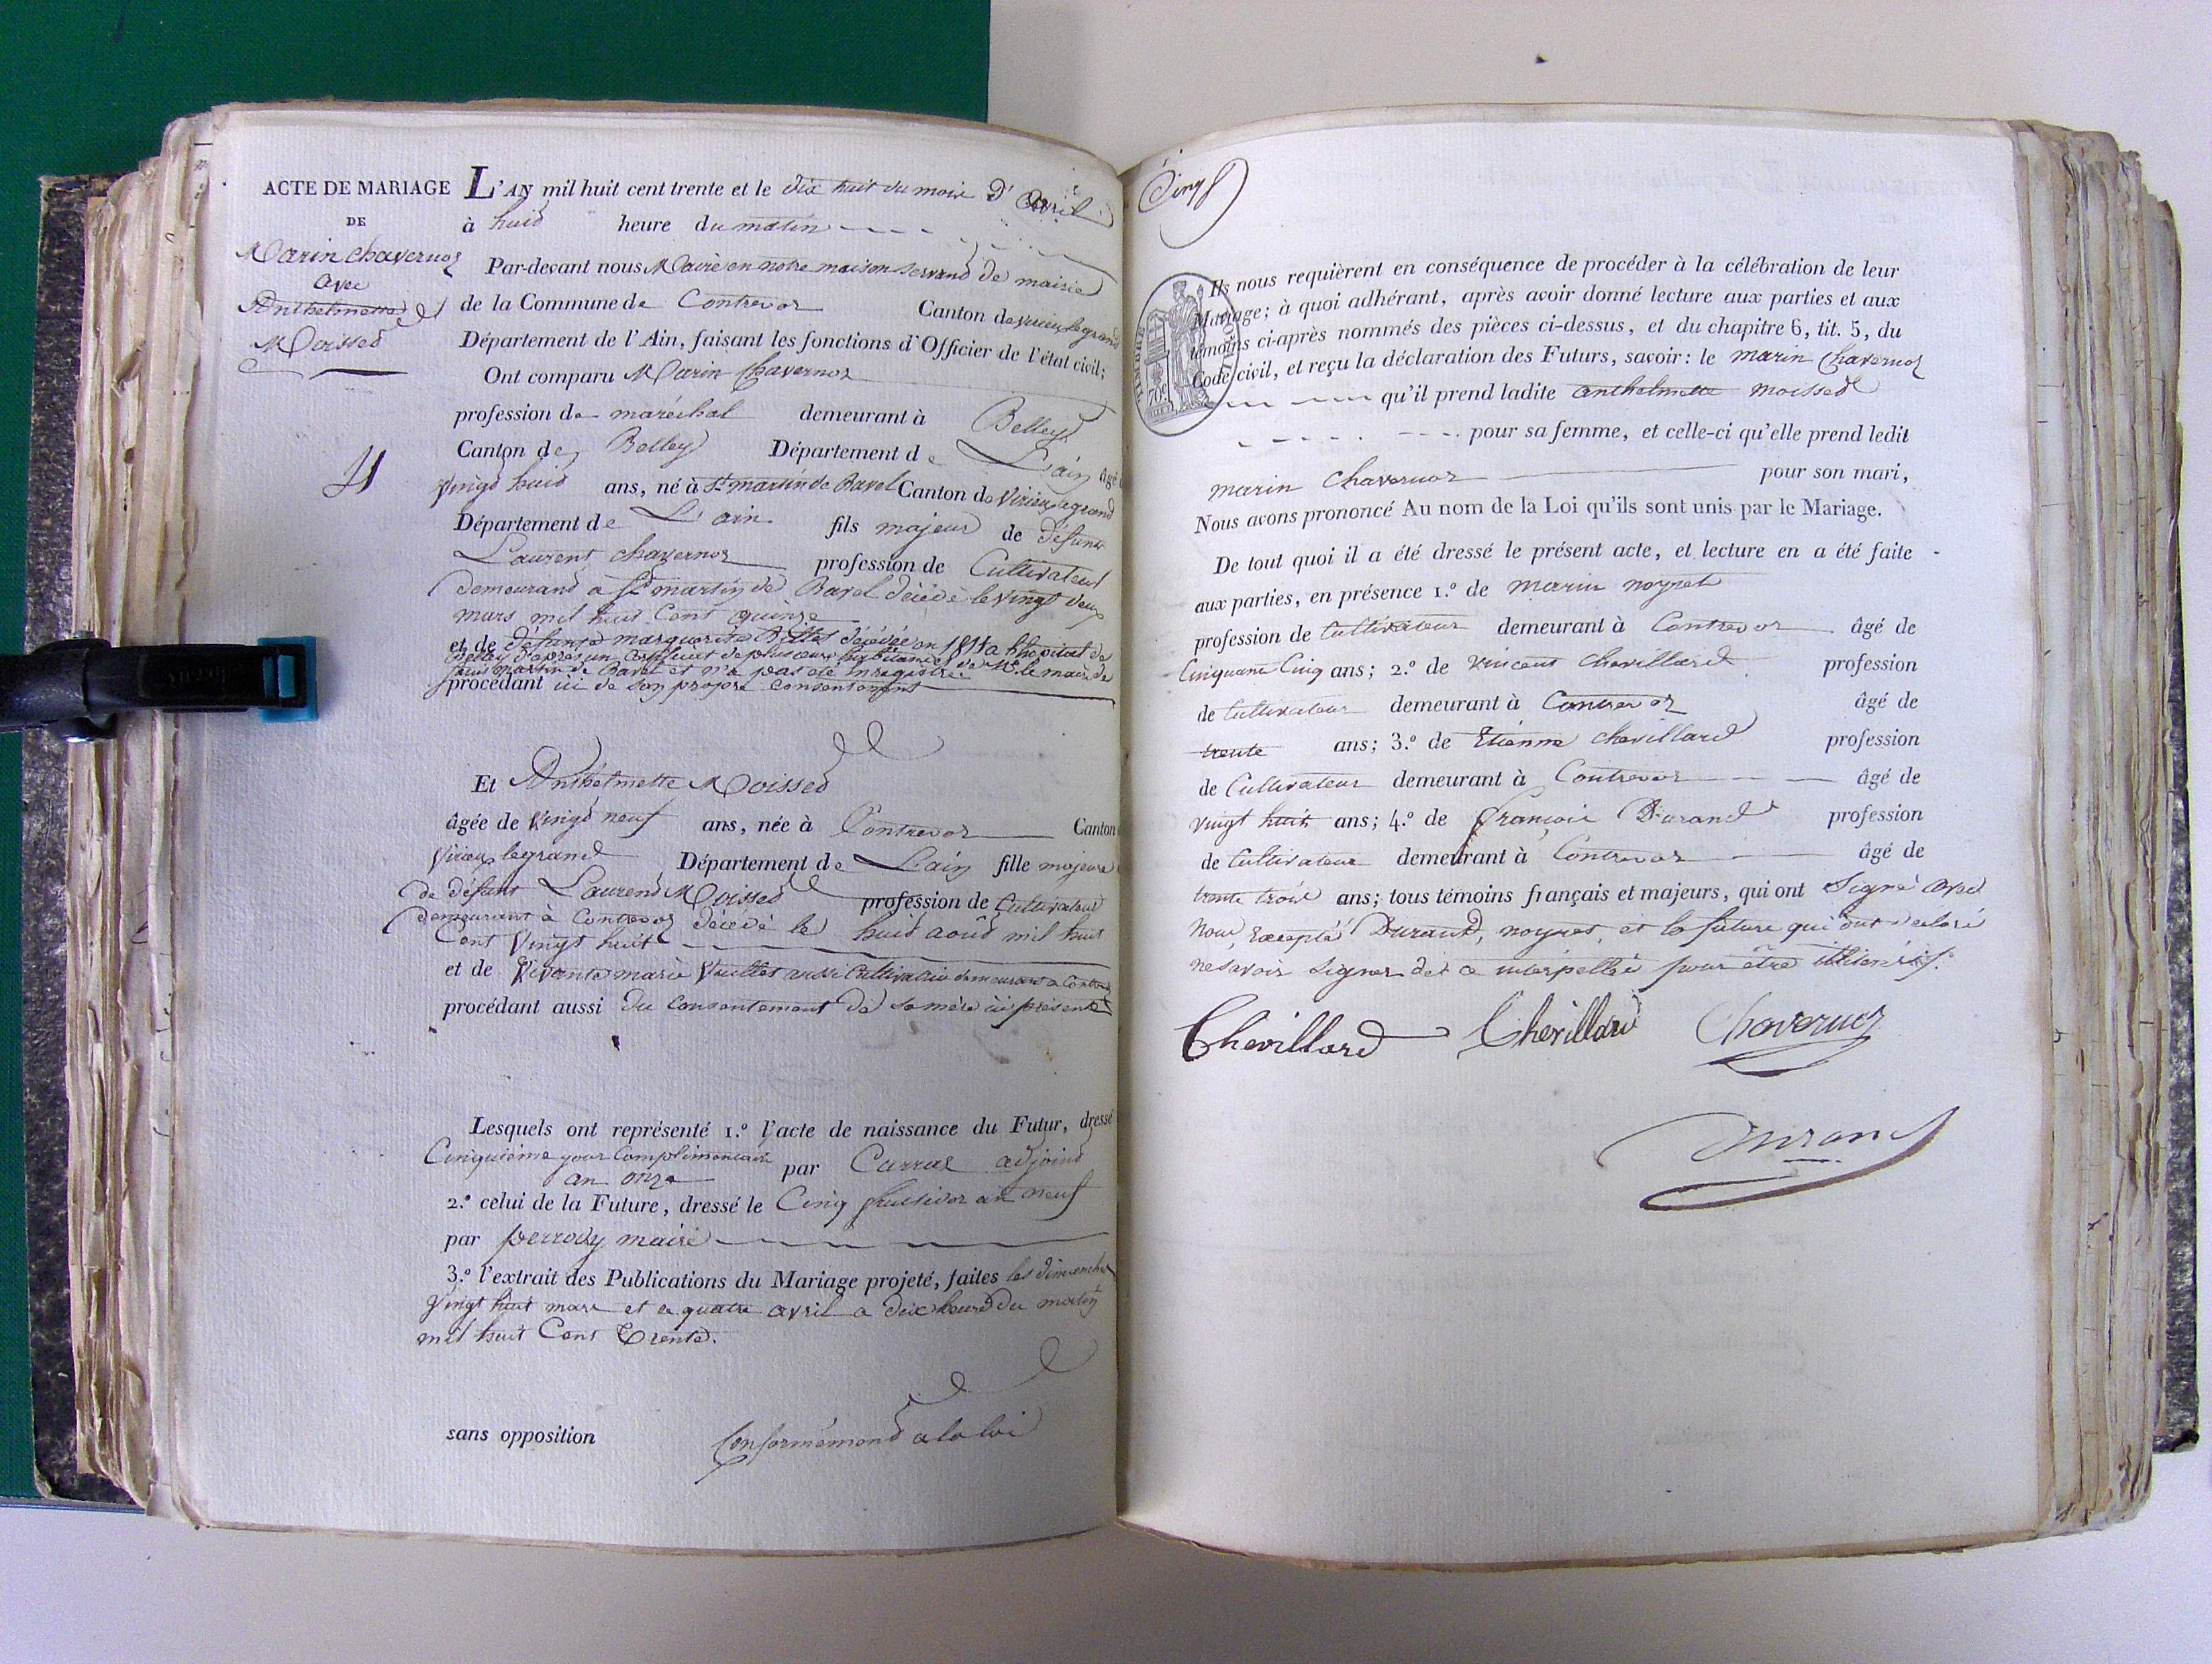 ACTE DE MARIAGE
DE
Marin Chavernoz
avec
Anthelmette
Moissed
4
L'AN mil huit cent trente et le dix huit du mois d'avril
à huid heure du matin
Par-devant nous Maire en notre maison servand de mairie
de la Commune de Contrevoz Canton de virieu le grand
Département de l'Ain, faisant les fonctions d'Officier de l'état civil;
Ont comparu Marin Chavernoz
profession de maréchal demeurant à Belley
Canton de Belley Département de L'ain âgé
vingd huid ans, né à St martin de Bavel Canton de Virieu le grand
Département de L'ain fils majeur de défunt
Laurent chavernoz profession de Cultivateur
demeurand a St martin de Bavel décédé le vingt deux
mars mil huit Cent quinze
et de défunte marguerite décédée en 1814 a l'hopital de
Belley d'après un de plusieurs de Mr. le maire de
saint martin de Bavel et n'a pas été enregistrée
procédant ici de son propre consentement
Et Anthelmette Moissed
âgée de vingd neuf ans, née à Contrevoz Canton
Virieu le grand Département de L'ain fille majeure
de défunt Laurend Moissed profession de Cultivateur
demeurant à Contrevoz décédé le huid aoûd mil huit
Cent Vingt huit
et de vivante marie Vuillet aussi Cultivatrice demeurant a Contrevoz
procédant aussi du consentement de sa mère ici présente
Lesquels ont représenté 1.º l'acte de naissance du Futur, dressé
Cinquième jour Complémentaire par Carrel adjoind
an onze
2.º celui de la Future, dressé le Cinq fructidor an neuf
par perrody maire
3.º l'extrait des Publications du Mariage projeté, faites les dimenches
vingt huit mars et le quatre avril a dix heures du matin
mil huit Cent Trente.
sans opposition Conformémend a la loi
Cinq
Ils nous requièrent en conséquence de procéder à la célébration de leur
Mariage; à quoi adhérant, après avoir donné lecture aux parties et aux
témoins ci-après nommés des pièces ci-dessus, et du chapitre 6, tit. 5, du
Code civil, et reçu la déclaration des Futurs, savoir: le marin Chavernoz
qu'il prend ladite anthelmette moissed
pour sa femme, et celle-ci qu'elle prend ledit
marin Chavernoz pour son mari,
Nous avons prononcé Au nom de la Loi qu'ils sont unis par le Mariage.
De tout quoi il a été dressé le présent acte, et lecture en a été faite
aux parties, en présence 1.º de marin noyret
profession de Cultivateur demeurant à Contrevoz âgé de
Cinquante Cinq ans; 2.º de vincent chevillard profession
de Cultivateur demeurant à Contrevoz âgé de
trente ans; 3.º de Etienne chevillard profession
de Cultivateur demeurant à Contrevoz âgé de
vingt huit ans; 4.º de françois Durand profession
de Cultivateur demeurant à Contrevoz âgé de
trente trois ans; tous témoins français et majeurs, qui ont signé avec
nous, Excepté Durand, noyret, et la future qui ont déclaré
ne savoir signer de ce interpellés pour être
Chevillard Chevillard Chavernoz
Durand
TIMBRE
70c